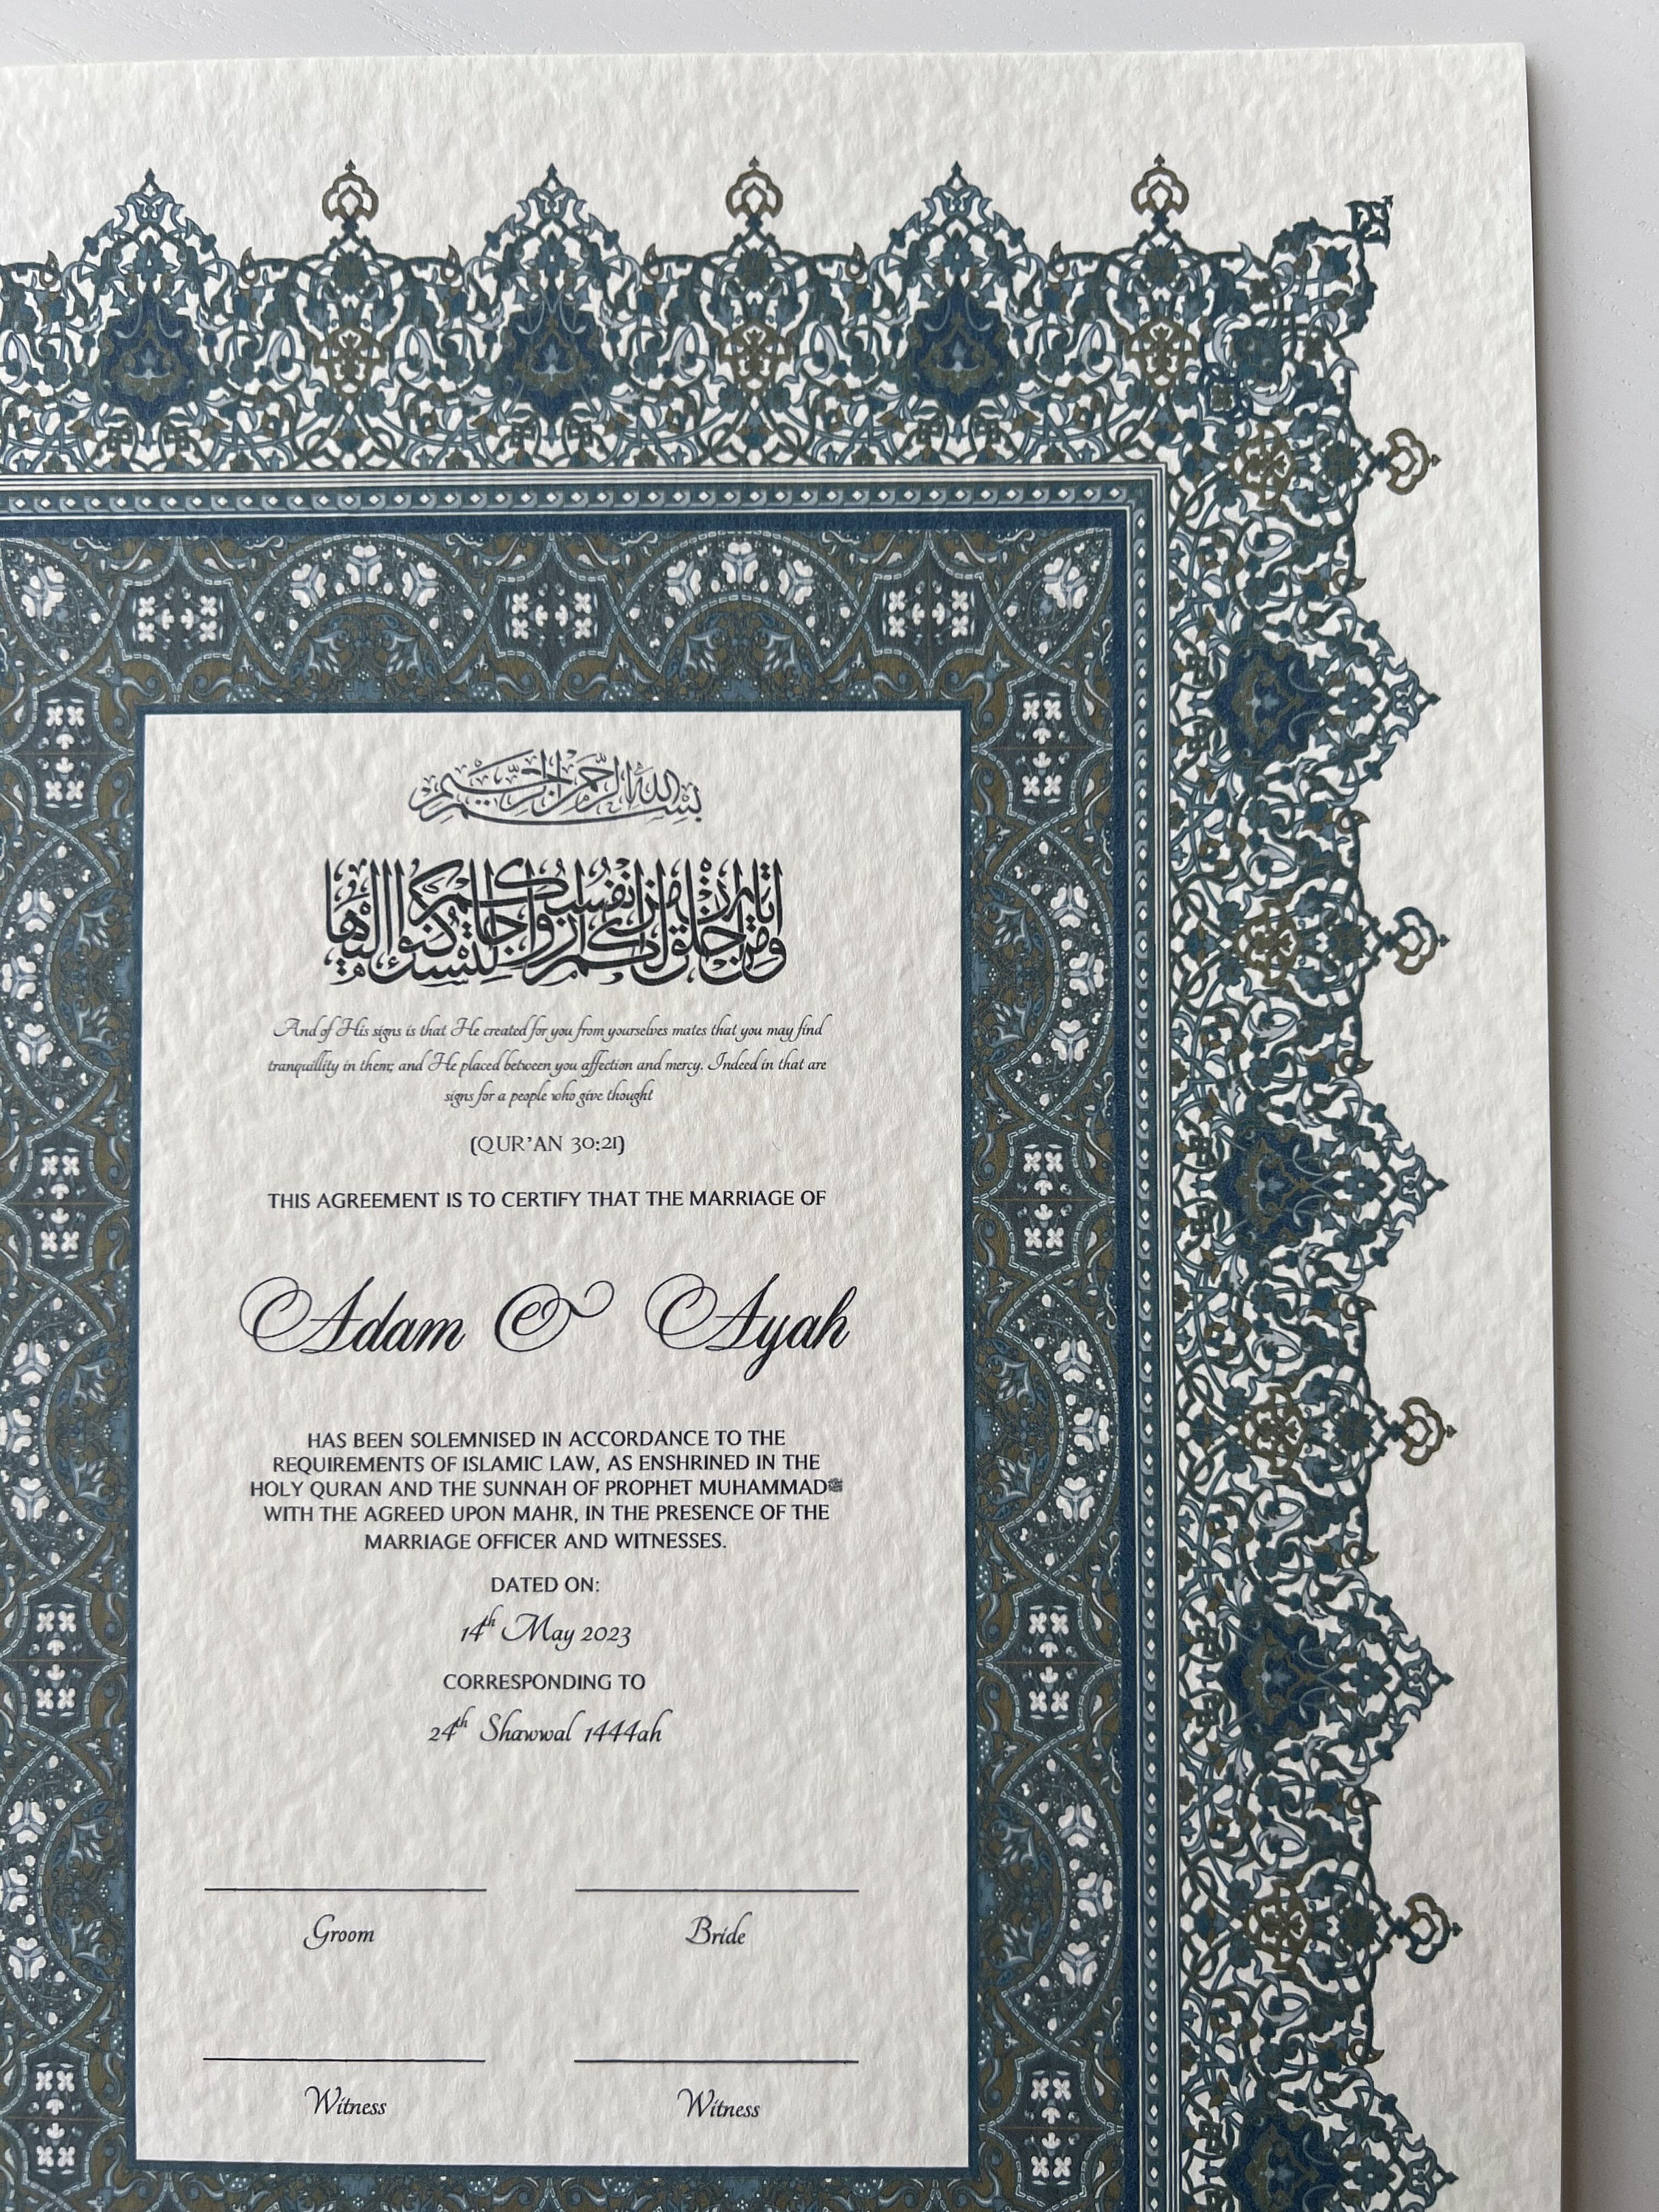 بسم الله الرحمن الرحيم
ومن اياته ان خلق لكم من انفسكم ازواجا لتسكنوا اليها
And of His signs is that He created for you from yourselves mates that you may find
tranquillity in them; and He placed between you affection and mercy. Indeed in that are
signs for a people who give thought
(QUR'AN 30:21)
THIS AGREEMENT IS TO CERTIFY THAT THE MARRIAGE OF
Adam & Ayah
HAS BEEN SOLEMNISED IN ACCORDANCE TO THE
REQUIREMENTS OF ISLAMIC LAW, AS ENSHRINED IN THE
HOLY QURAN AND THE SUNNAH OF PROPHET MUHAMMADﷺ
WITH THE AGREED UPON MAHR, IN THE PRESENCE OF THE
MARRIAGE OFFICER AND WITNESSES.
DATED ON:
14th May 2023
CORRESPONDING TO
24th Shawwal 1444ah
Groom Bride
Witness Witness